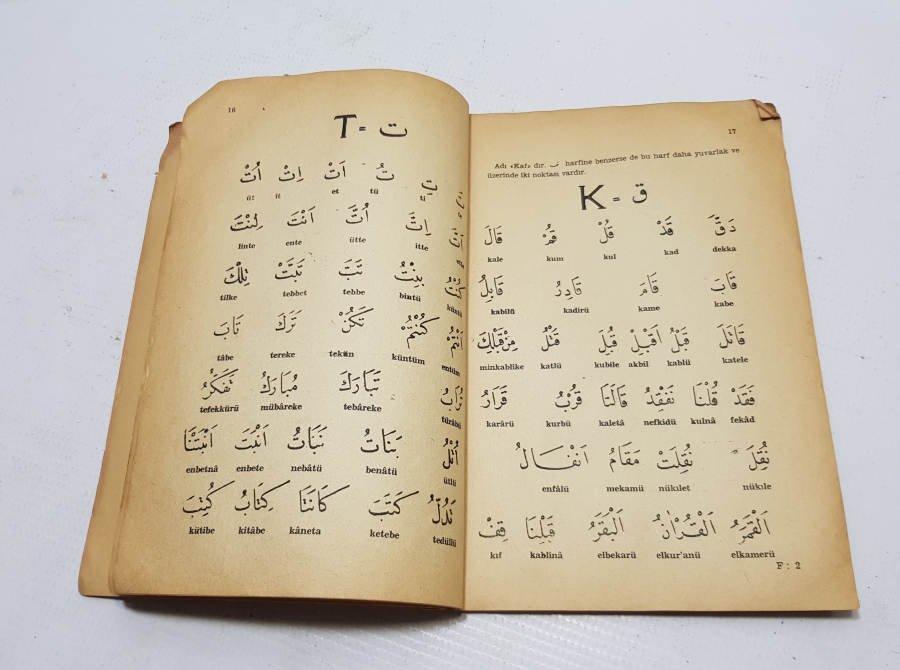 16
T = ت
تِ تُ اَتْ اِتْ اُتْ
ti tü et it üt
اِتَّ اُتَّ اَنْتَ لِنْتَ
itte ütte ente linte
كُنْتُ بِنْتُ تَبَّ تَبَّتْ تِلْكَ
küntü bintü tebbe tebbet tilke
اَنْتُمْ كُنْتُمْ تَكُنْ تَرَكَ تَابَ
entüm küntüm tekün tereke tâbe
تُرَابُ تَبَارَكَ مُبَارَكُ تَفَكُّرُ
türâbü tebâreke mübâreke tefekkürü
اُتْلُ بَنَاتُ نَبَاتُ اَنْبَتَ اَنْبَتْنَا
ütlü benâtü nebâtü enbete enbetnâ
تَدُلُّ كَتَبَ كَانَتَا كِتَابُ كُتِبَ
tedüllü ketebe kâneta kitâbe kütibe
17
Adı «Kaf» dır. ف harfine benzerse de bu harf daha yuvarlak ve
üzerinde iki noktası vardır.
K = ق
دَقَّ قَدْ قُلْ قُمْ قَالَ
dekka kad kul kum kale
قَابَ قَامَ قَادِرُ قَابِلُ
kabe kame kadirü kabilü
قَاتَلَ قَبْلُ اَقْبِلْ قُبِلَ قَتْلُ مِنْ قَبْلِكَ
katele kablü akbil kubile katlü minkablike
فَقَدْ قُلْنَا نَفْقِدُ قَالَتَا قُرْبُ قَرَارُ
fekâd kulnâ nefkidü kaletâ kurbü karârü
نُقِلَ نُقِلَتْ مَقَامُ اَنْفَالُ
nükıle nükılet mekamü enfâlü
اَلْقَمَرُ اَلْقُرْاٰنُ اَلْبَقَرُ قَبْلِنَا قِفْ
elkamerü elkur'anü elbekarü kablinâ kıf
F : 2